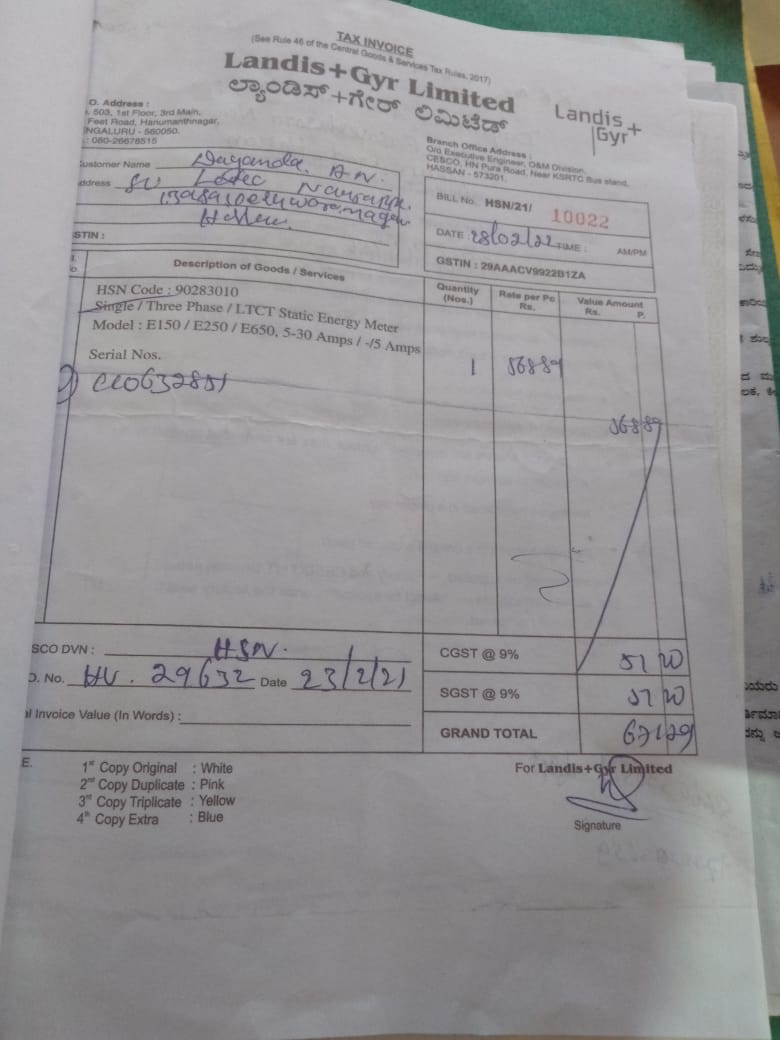 TAX INVOICE
(See Rule 46 of the Central Goods & Services Tax Rules, 2017)
Landis+Gyr Limited
ಲ್ಯಾಂಡಿಸ್+ಗೇರ್ ಲಿಮಿಟೆಡ್
Landis+
Gyr
O. Address :
503, 1st Floor, 3rd Main,
Feet Road, Hanumanthnagar,
NGALURU - 560050.
: 080-26678515
Branch Office Address :
O/o Executive Engineer, O&M Division,
CESCO, HN Pura Road, Near KSRTC Bus stand,
HASSAN - 573201.
ustomer Name
ddress
STIN :
BILL No. HSN/21/ 10022
DATE 28/02/22 TIME : AM/PM
GSTIN : 29AAACV9922B1ZA
Description of Goods / Services
Quantity (Nos.)
Rate per Pc Rs.
Value Amount
Rs. P.
HSN Code : 90283010
Single / Three Phase / LTCT Static Energy Meter
Model : E150 / E250 / E650, 5-30 Amps / -/5 Amps
Serial Nos.
1 56889
56889
SCO DVN : HSN.
O. No. 29632 Date 23/2/21
l Invoice Value (In Words) :
CGST @ 9% 51 20
SGST @ 9% 51 20
GRAND TOTAL 67129
E.
1st Copy Original : White
2nd Copy Duplicate : Pink
3rd Copy Triplicate : Yellow
4th Copy Extra : Blue
For Landis+Gyr Limited
Signature